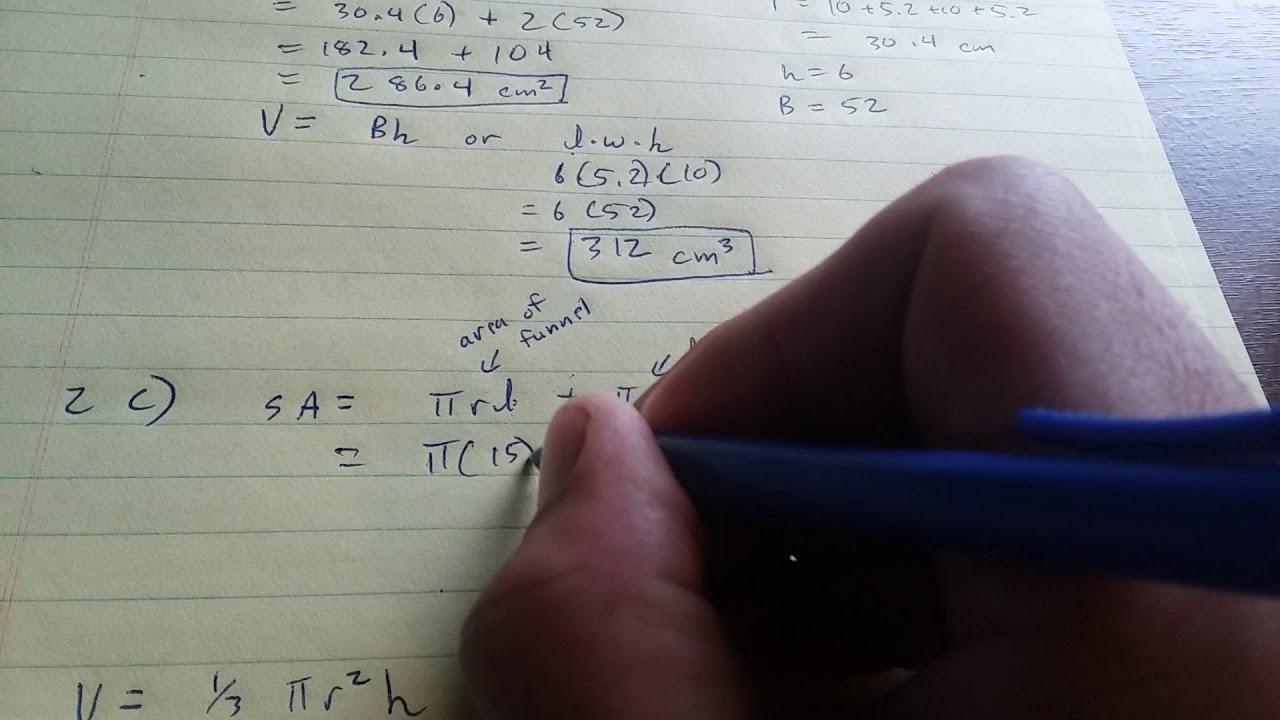 = 30.4(6) + 2(52)
= 182.4 + 104
= 286.4 cm²
= 10 + 5.2 + 10 + 5.2
= 30.4 cm
h = 6
B = 52
V = Bh or l.w.h
6(5.2)(10)
= 6(52)
= 312 cm³
area of funnel
2 c) SA = πrl + π
= π(15)
V = ⅓ πr²h